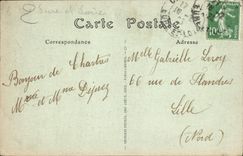 Eure et Loire
Carte Postale
Correspondance
Adresse
10
Melle Gabrielle Leroy
66 rue de Flandres
Lille
(Nord)
Bonjour de Chartres
Mme